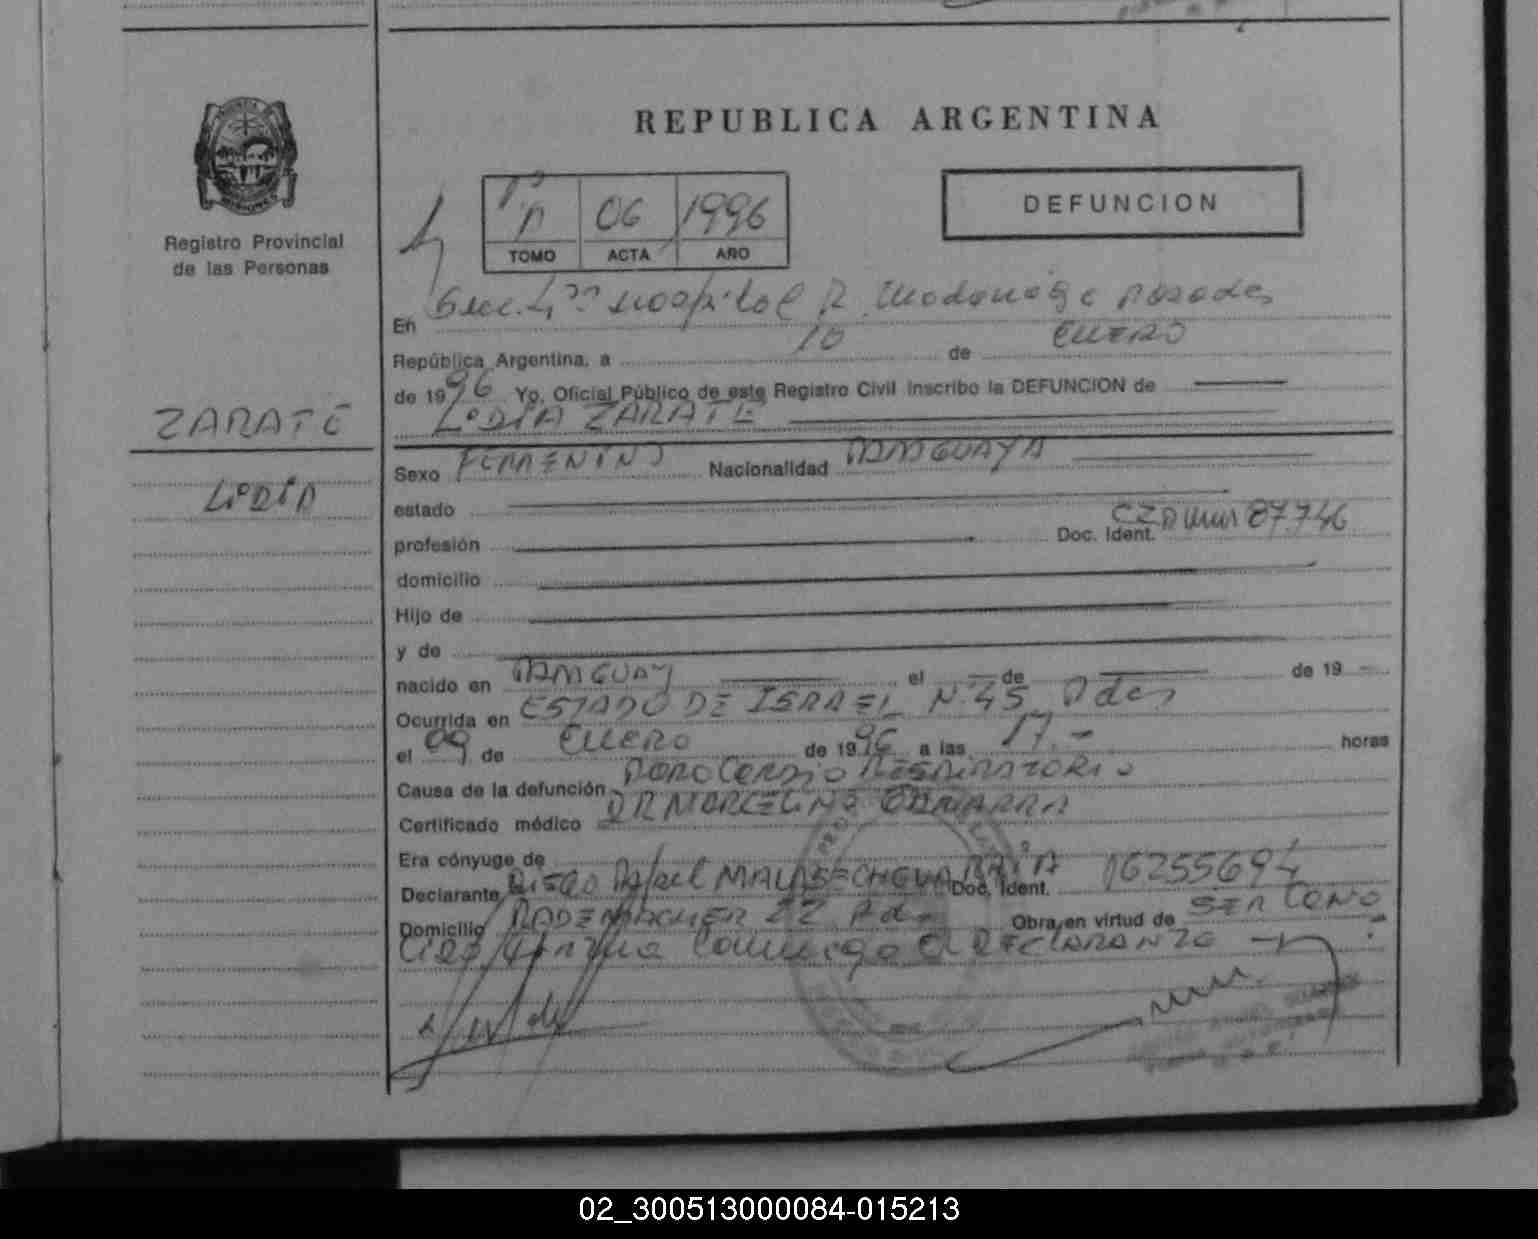 REPUBLICA ARGENTINA
Registro Provincial
de las Personas
1º A 06 1996
TOMO ACTA AÑO
DEFUNCION
En Secc. 4 Hospital R. Madariaga Posadas
República Argentina, a 10 de ENERO
de 1996 Yo, Oficial Público de este Registro Civil inscribo la DEFUNCION de
LIDIA ZARATE
ZARATE
LIDIA
Sexo FEMENINO Nacionalidad PARAGUAYA
estado
profesión Doc. Ident. 87746
domicilio
Hijo de
y de
nacido en PARAGUAY el de de 19
Ocurrida en ESTADO DE ISRAEL N. 45 Pdas
el 09 de ENERO de 1996 a las 17.- horas
Causa de la defunción PARO CARDIO RESPIRATORIO
Certificado médico DR MARCELINO GAMARRA
Era cónyuge de
Declarante Diego Rafael Doc. Ident. 16255694
Domicilio RADEMACHER 22 Pdas Obra en virtud de SER CONO
CIDO firma conmigo el DECLARANTE
02_300513000084-015213